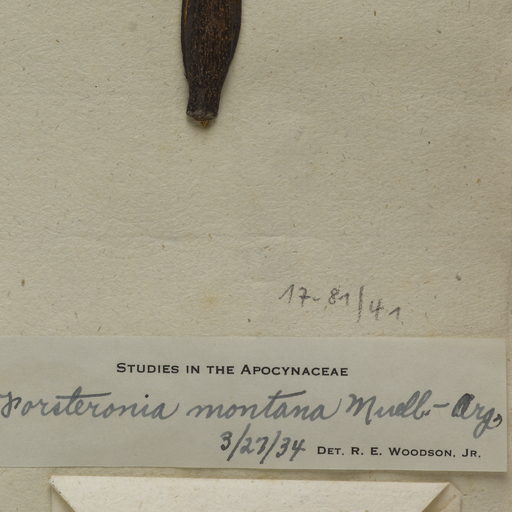 17-81/41
STUDIES IN THE APOCYNACEAE
Forsteronia montana Muell.-Arg.
3/27/34 DET. R. E. WOODSON, JR.